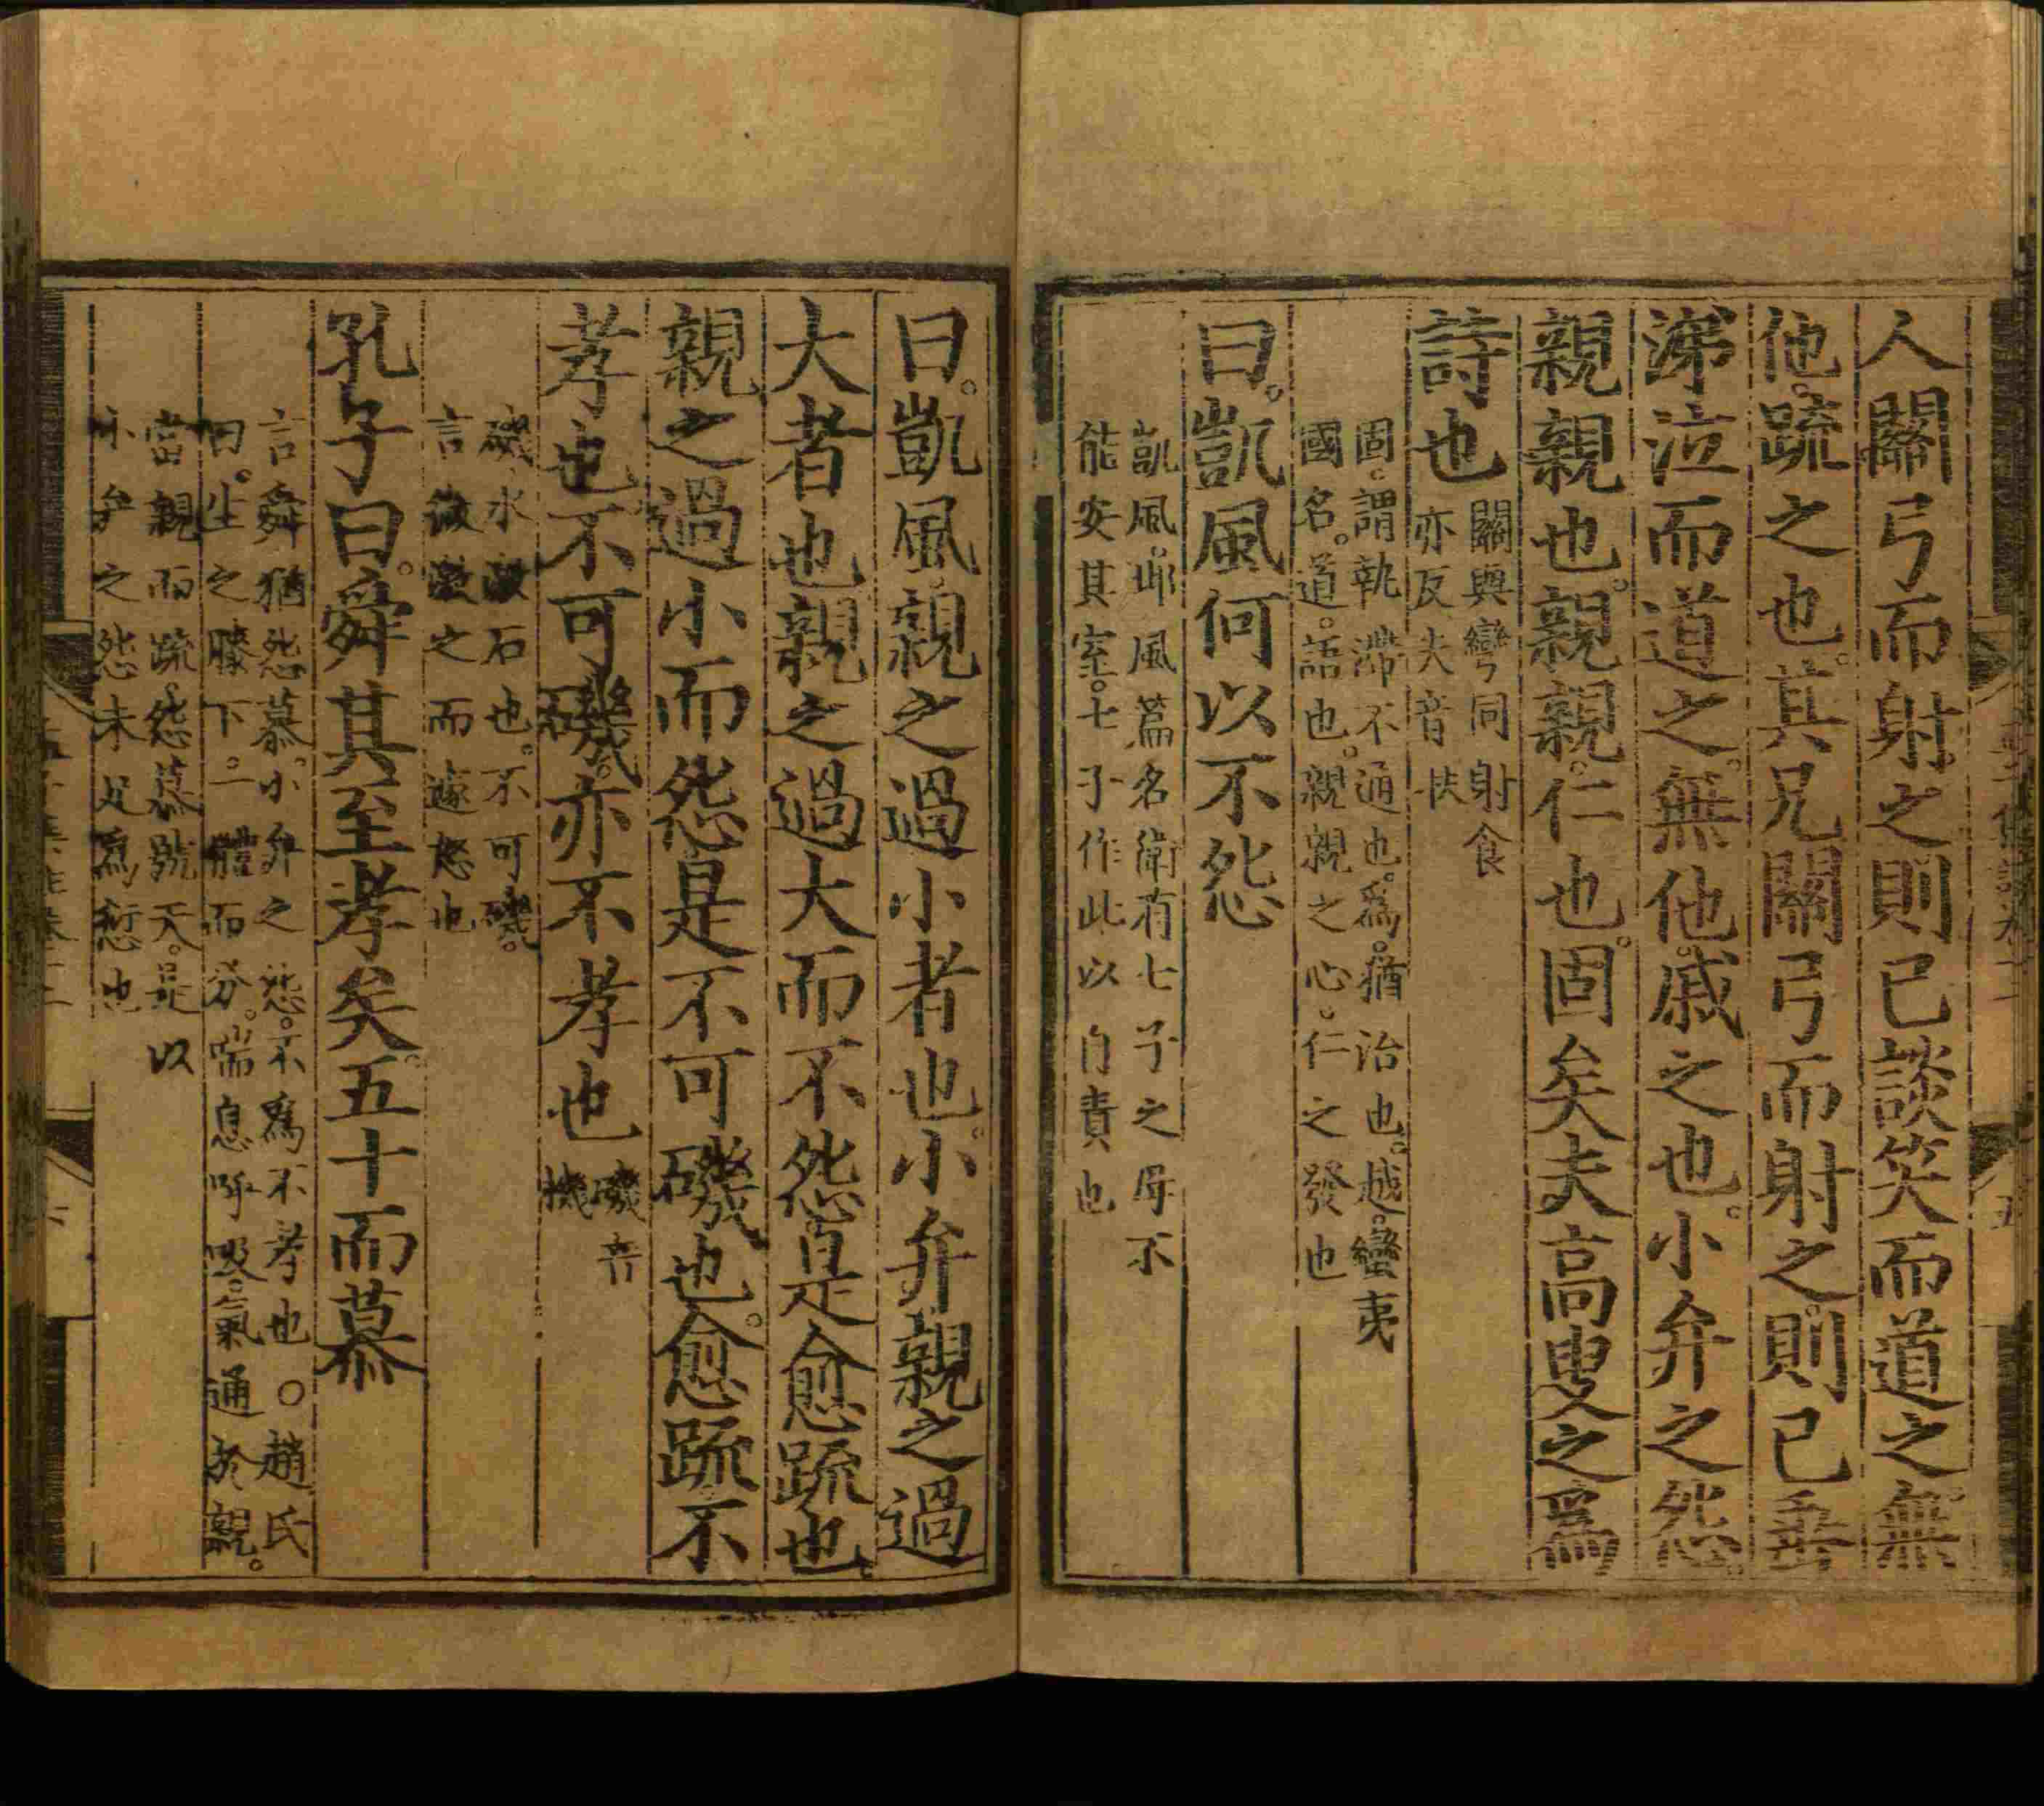 人關弓而射之則已談笑而道之無
他疏之也其兄關弓而射之則己垂
涕泣而道之無他戚之也小弁之怨
親親也親親仁也固矣夫高叟之為
詩也
關與彎同射食
亦反夫音扶
固謂執滯不通也為猶治也越蠻夷
國名道語也親親之心仁之發也
曰凱風何以不怨
凱風邶風篇名衛有七子之母不
能安其室七子作此以自責也
曰凱風親之過小者也小弁親之過
大者也親之過大而不怨是愈疏也
親之過小而怨是不可磯也愈疏不
孝也不可磯亦不孝也
磯音
機
磯水激石也不可磯
言微激之而遽怒也
孔子曰舜其至孝矣五十而慕
言舜猶怨慕小弁之怨不為不孝也○趙氏
曰生之膝下一體而分喘息呼吸氣通於親
當親而疏怨慕號天是以
小弁之怨未足為愆也